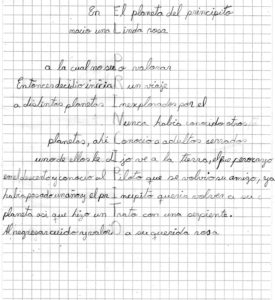 En El planeta del principito
nacio una Linda rosa
a la cual no supo valorar
Entonces decidio iniciaR un viaje
a distintos planetas Inexplorados por el
Nunca habia conocido otros
planetas, ahi Conocio a adultos cerrados
uno de ellos le dIjo ve a la tierra, el principe cayo
en el desierto y conocio al Piloto que se volvio su amigo, ya
habia pasado un año y el prIncipito queria volver a su
planeta asi que hizo un Trato con una serpiente.
Al regresar cuido y valorO a su querida rosa